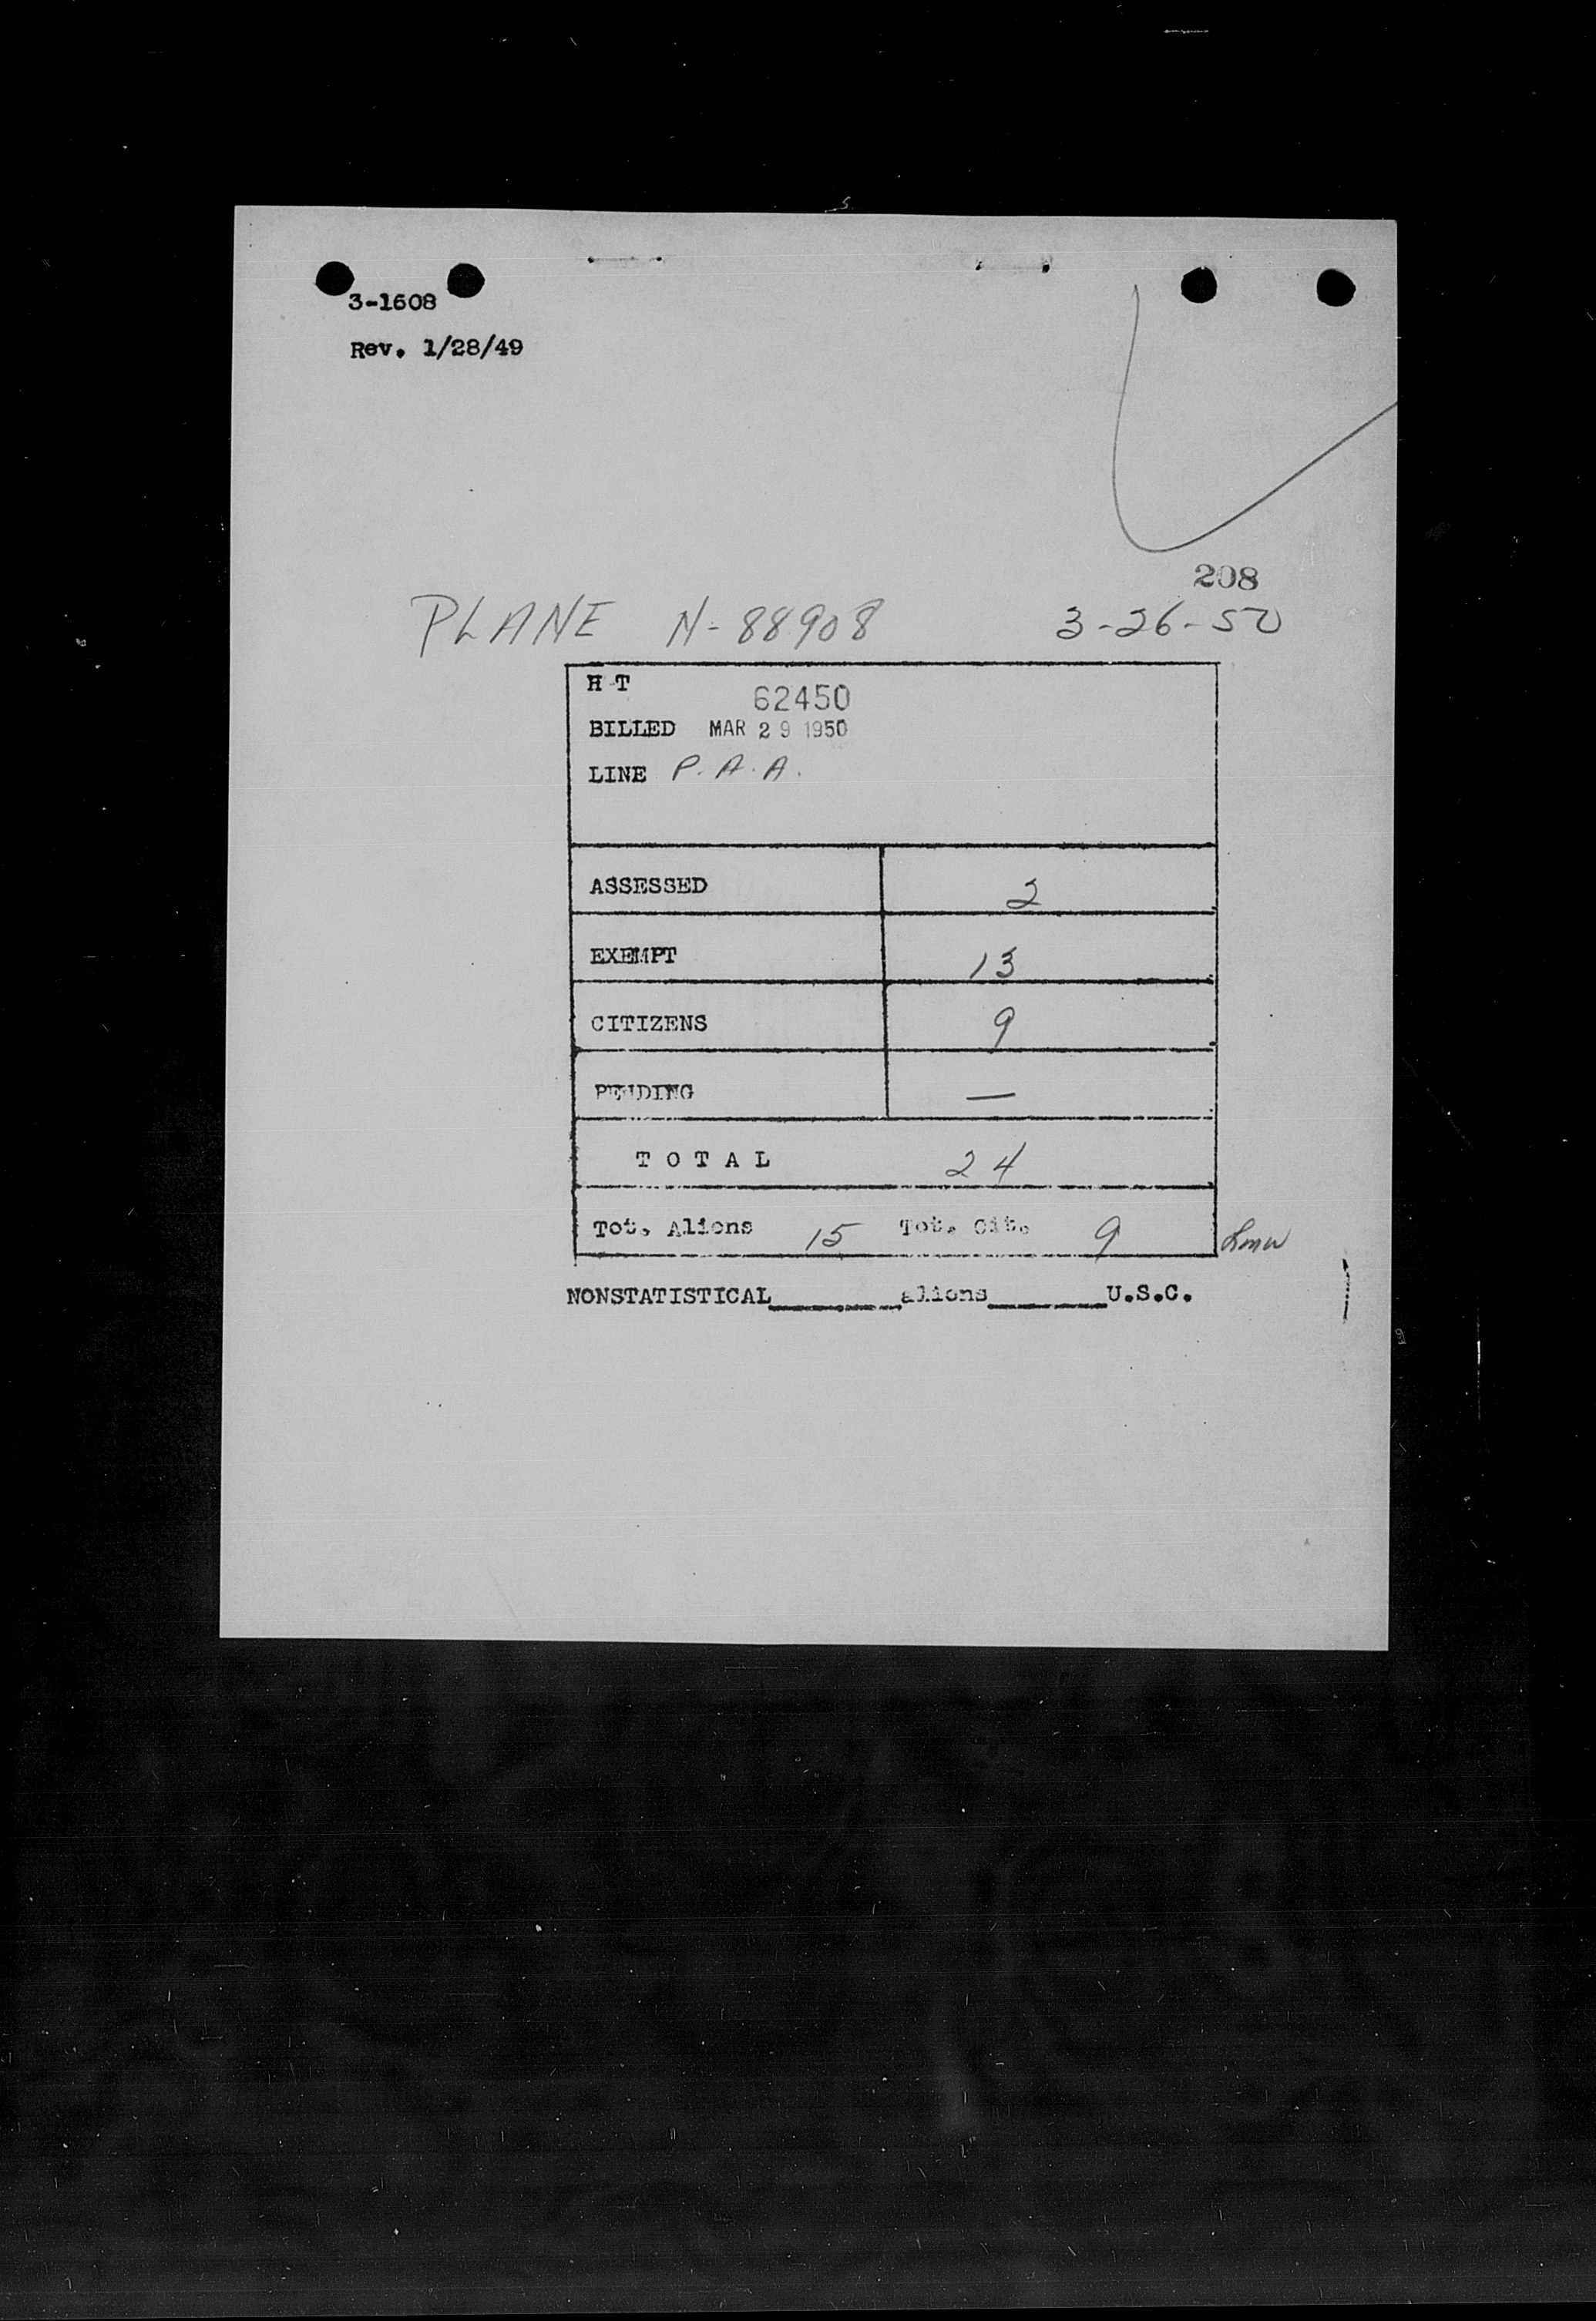 3-1608
Rev. 1/28/49
208
PLANE N-88908 3-26-50
H T 62450
BILLED MAR 29 1950
LINE P.A.A.
ASSESSED 2
EXEMPT 13
CITIZENS 9
PENDING —
T O T A L 24
Tot. Aliens 15 Tot. Cit. 9
NONSTATISTICAL________aliens________U.S.C.